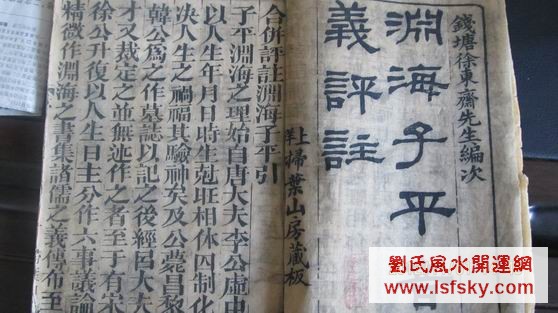 錢塘徐東齋先生編次
淵海子平
義評註
上洋掃葉山房藏板
合併評註淵海子平引
子平淵海之理始自唐大夫李公虛中
以人生年月日時生尅旺相休囚制化
決人生之禍福其驗神矣及公薨昌黎
韓公為之作墓誌以記之後經呂大夫
才又裁定之並無述作之者至于有宋
徐公升復以人生日主分作六事議論
精微作淵海之書集諸儒之義傳布至
劉氏風水開運網
www.lsfsky.com